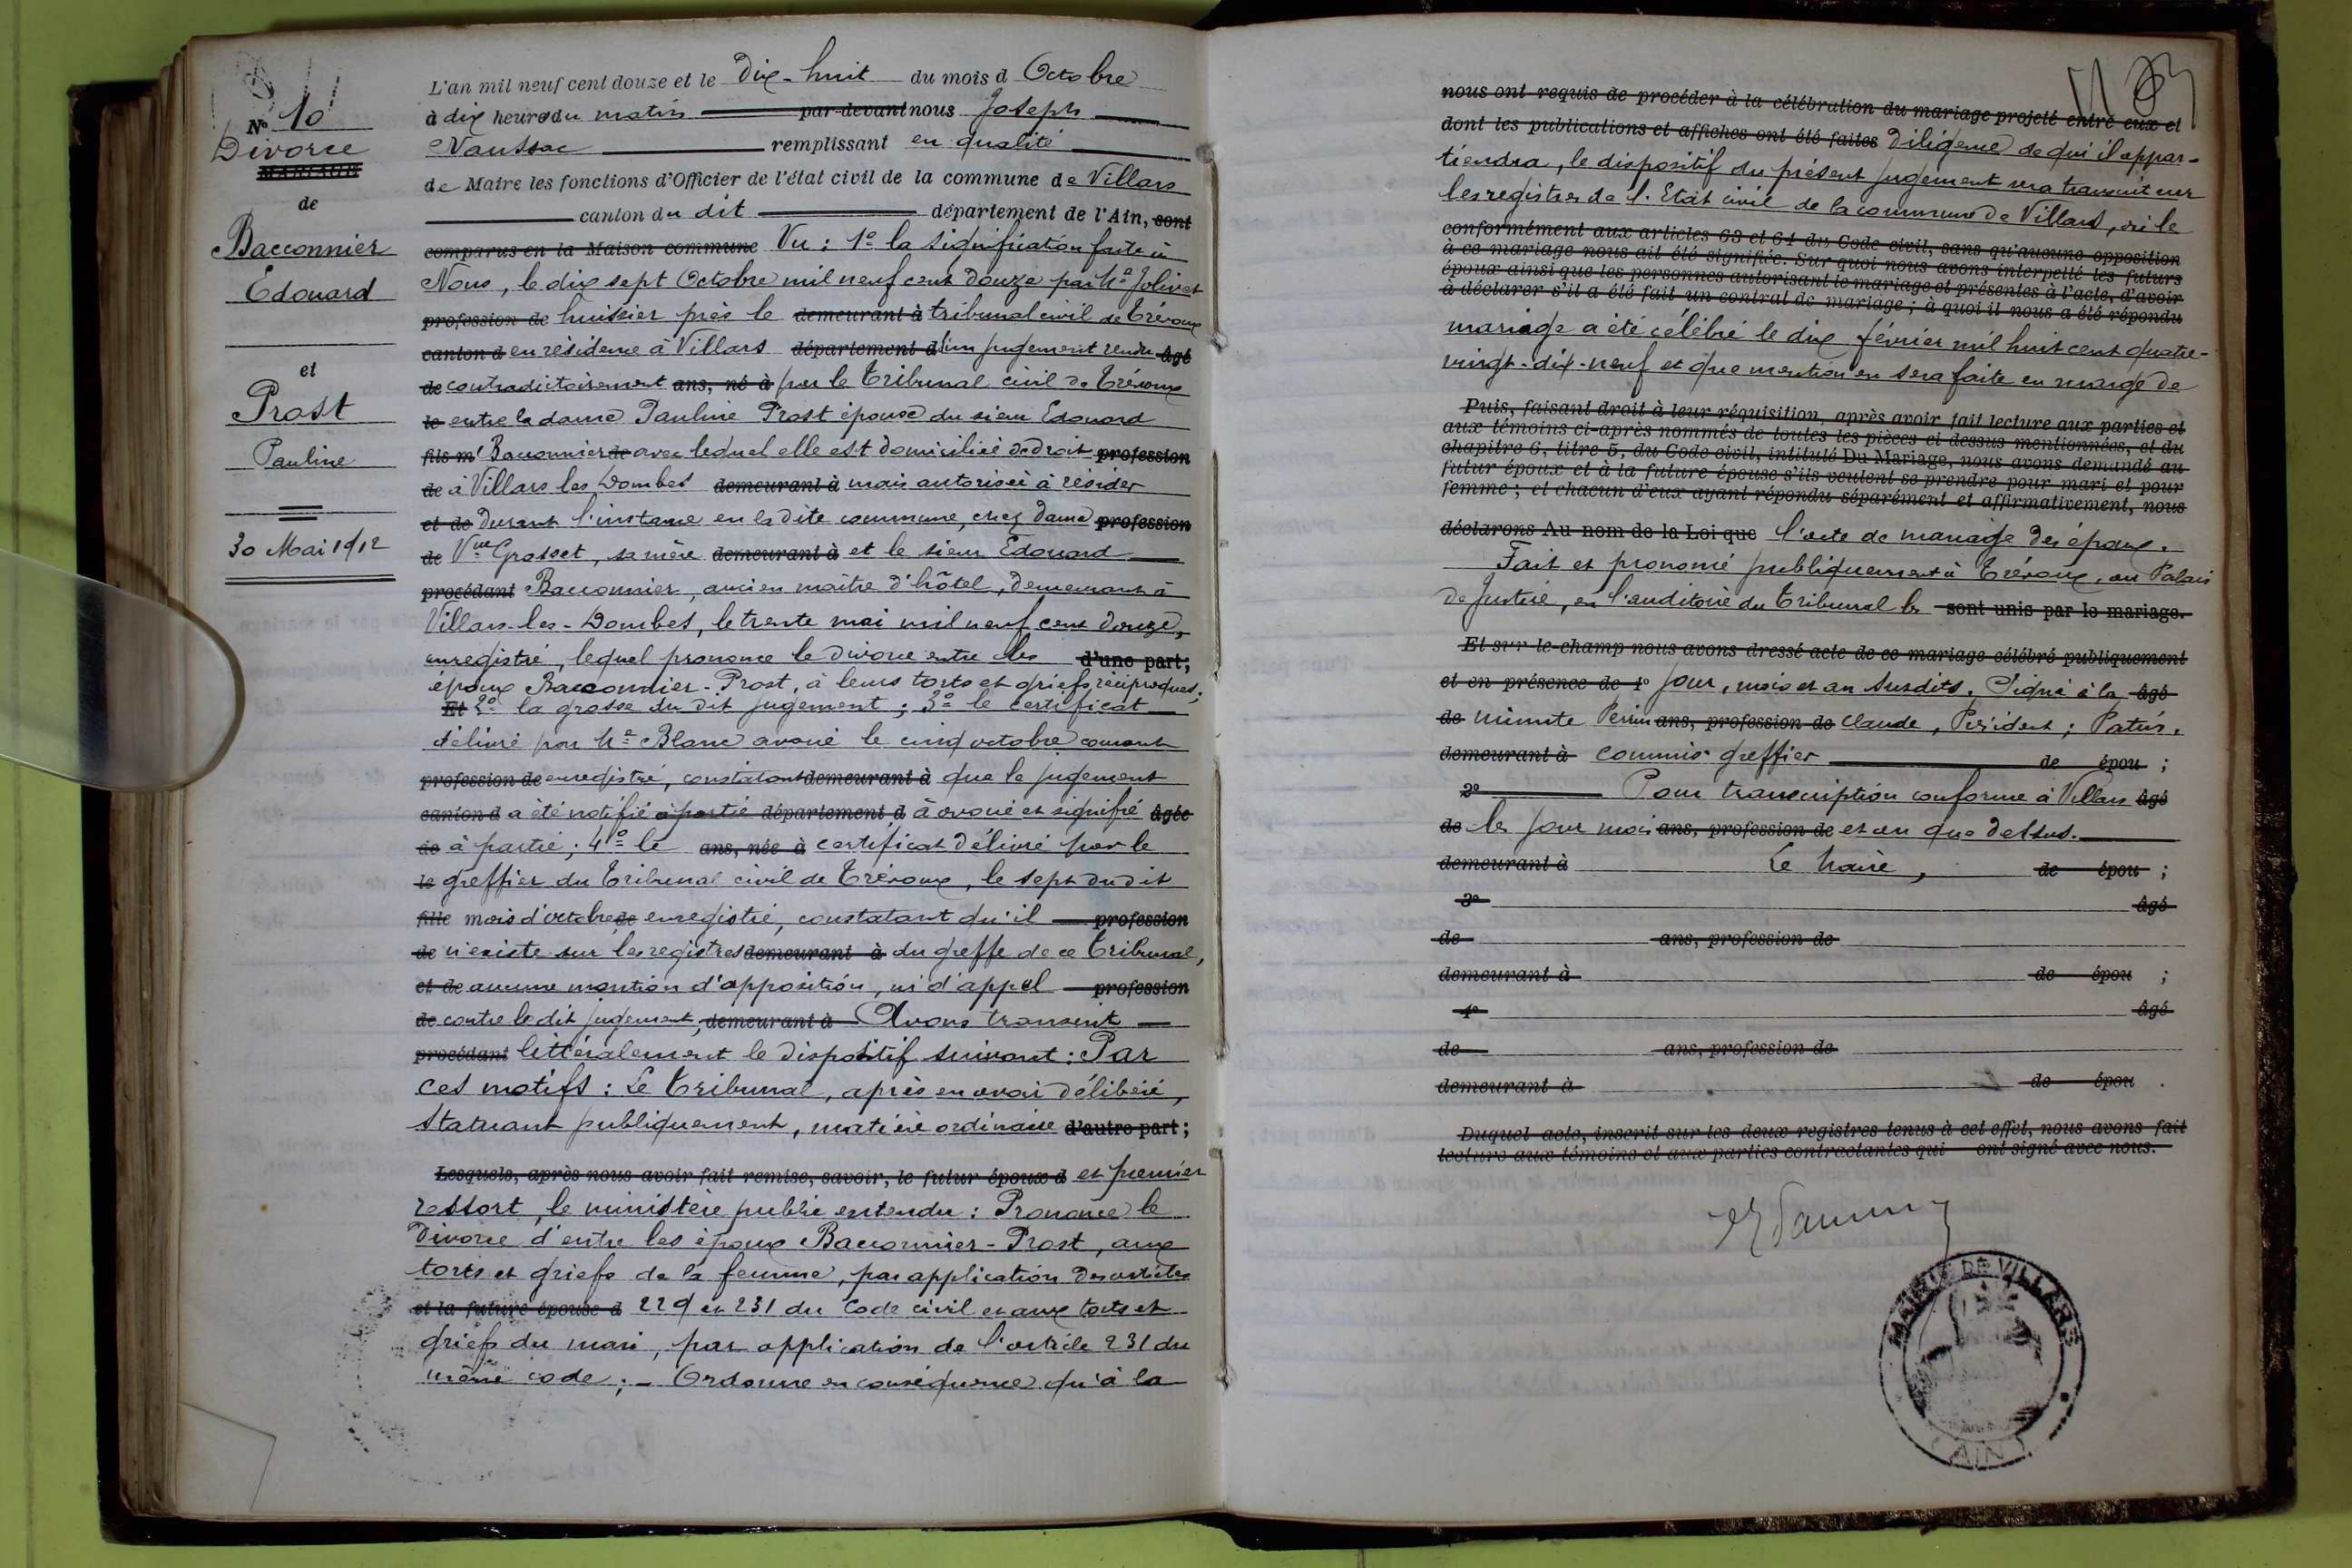 N° 10
Divorce
MARIAGE
de
Bacconnier
Edouard
et
Prost
Pauline
30 Mai 1912
L'an mil neuf cent douze et le Dix-huit du mois d Octobre
à dix heures du matin par-devant nous Joseph
Naussac remplissant en qualité
de Maire les fonctions d'Officier de l'état civil de la commune de Villars
canton du dit département de l'Ain, sont
comparus en la Maison commune Vu : 1° la signification faite à
Nous, le dix sept Octobre mil neuf cent douze par Me Jolivet
profession de huissier près le demeurant à tribunal civil de Trévoux
canton d en résidence à Villars département d d'un jugement rendu âgé
de contradictoirement ans, né à par le Tribunal civil de Trévoux
le entre la dame Pauline Prost épouse du sieur Edouard
fils m Bacconnier de avec lequel elle est domiciliée de droit profession
de à Villars les Dombes demeurant à mais autorisée à résider
et de Durant l'instance en la dite commune, chez dame profession
de Vve Grosset, sa mère demeurant à et le sieur Edouard
procédant Bacconnier, ancien maître d'hôtel, demeurant à
Villars-les-Dombes, le trente mai mil neuf cent douze,
enregistré, lequel prononce le divorce entre les d'une part;
époux Bacconnier-Prost, à leurs torts et griefs réciproques;
Et 2° la grosse du dit jugement ; 3° le certificat
délivré par Me Blanc avoué le cinq octobre courant
profession de enregistré, constatant demeurant à que le jugement
canton d a été notifié à partie département d à avoué et signifié âgée
de à partie ; 4° le ans, née à certificat délivré par le
le greffier du Tribunal civil de Trévoux, le sept du dit
fille mois d'octobre de enregistré, constatant qu'il profession
de n'existe sur les registres demeurant à du greffe de ce Tribunal,
et de aucune mention d'opposition, ni d'appel profession
de contre le dit jugement, demeurant à Avons transcrit
procédant littéralement le dispositif suivant : Par
ces motifs : Le Tribunal, après en avoir délibéré,
Statuant publiquement, matière ordinaire d'autre part;
Lesquels, après nous avoir fait remise, savoir, le futur époux d et premier
ressort, le ministère public entendu : Prononce le
Divorce d'entre les époux Bacconnier-Prost, aux
torts et griefs de la femme, par application des articles
et la future épouse d 229 et 231 du Code civil et aux torts et
griefs du mari, par application de l'article 231 du
même code ; - Ordonne en conséquence qu'à la
nous ont requis de procéder à la célébration du mariage projeté entre eux et
dont les publications et affiches ont été faites Diligence de qui il appar-
tiendra, le dispositif du présent jugement sera transcrit sur
les registres de l'Etat civil de la commune de Villars, où le
conformément aux articles 63 et 64 du Code civil, sans qu'aucune opposition
à ce mariage nous ait été signifiée. Sur quoi nous avons interpellé les futurs
époux ainsi que les personnes autorisant le mariage et présentes à l'acte, d'avoir
à déclarer s'il a été fait un contrat de mariage ; à quoi il nous a été répondu
mariage a été célébré le dix février mil huit cent quatre-
vingt-dix-neuf et que mention en sera faite en marge de
Puis, faisant droit à leur réquisition, après avoir fait lecture aux parties et
aux témoins ci-après nommés de toutes les pièces ci dessus mentionnées, et du
chapitre 6, titre 5, du Code civil, intitulé Du Mariage, nous avons demandé au
futur époux et à la future épouse s'ils veulent se prendre pour mari et pour
femme ; et chacun d'eux ayant répondu séparément et affirmativement, nous
déclarons Au nom de la Loi que l'acte de mariage des époux.
Fait et prononcé publiquement à Trévoux, au Palais
de Justice, en l'auditoire du Tribunal les sont unis par le mariage.
Et sur-le-champ nous avons dressé acte de ce mariage célébré publiquement
et en présence de 1° jour, mois et an susdits. Signé à la âgé
de minute Perrin ans, profession de Claude, Président ;
demeurant à commis greffier de épou ;
2° Pour transcription conforme à Villars âgé
de les jour mois ans, profession de et an que dessus.
demeurant à Le Maire, de épou ;
3° âgé
de ans, profession de
demeurant à de épou ;
4° âgé
de ans, profession de
demeurant à de épou .
Duquel acte, inscrit sur les deux registres tenus à cet effet, nous avons fait
lecture aux témoins et aux parties contractantes qui ont signé avec nous.
MAIRIE DE VILLARS
(AIN)